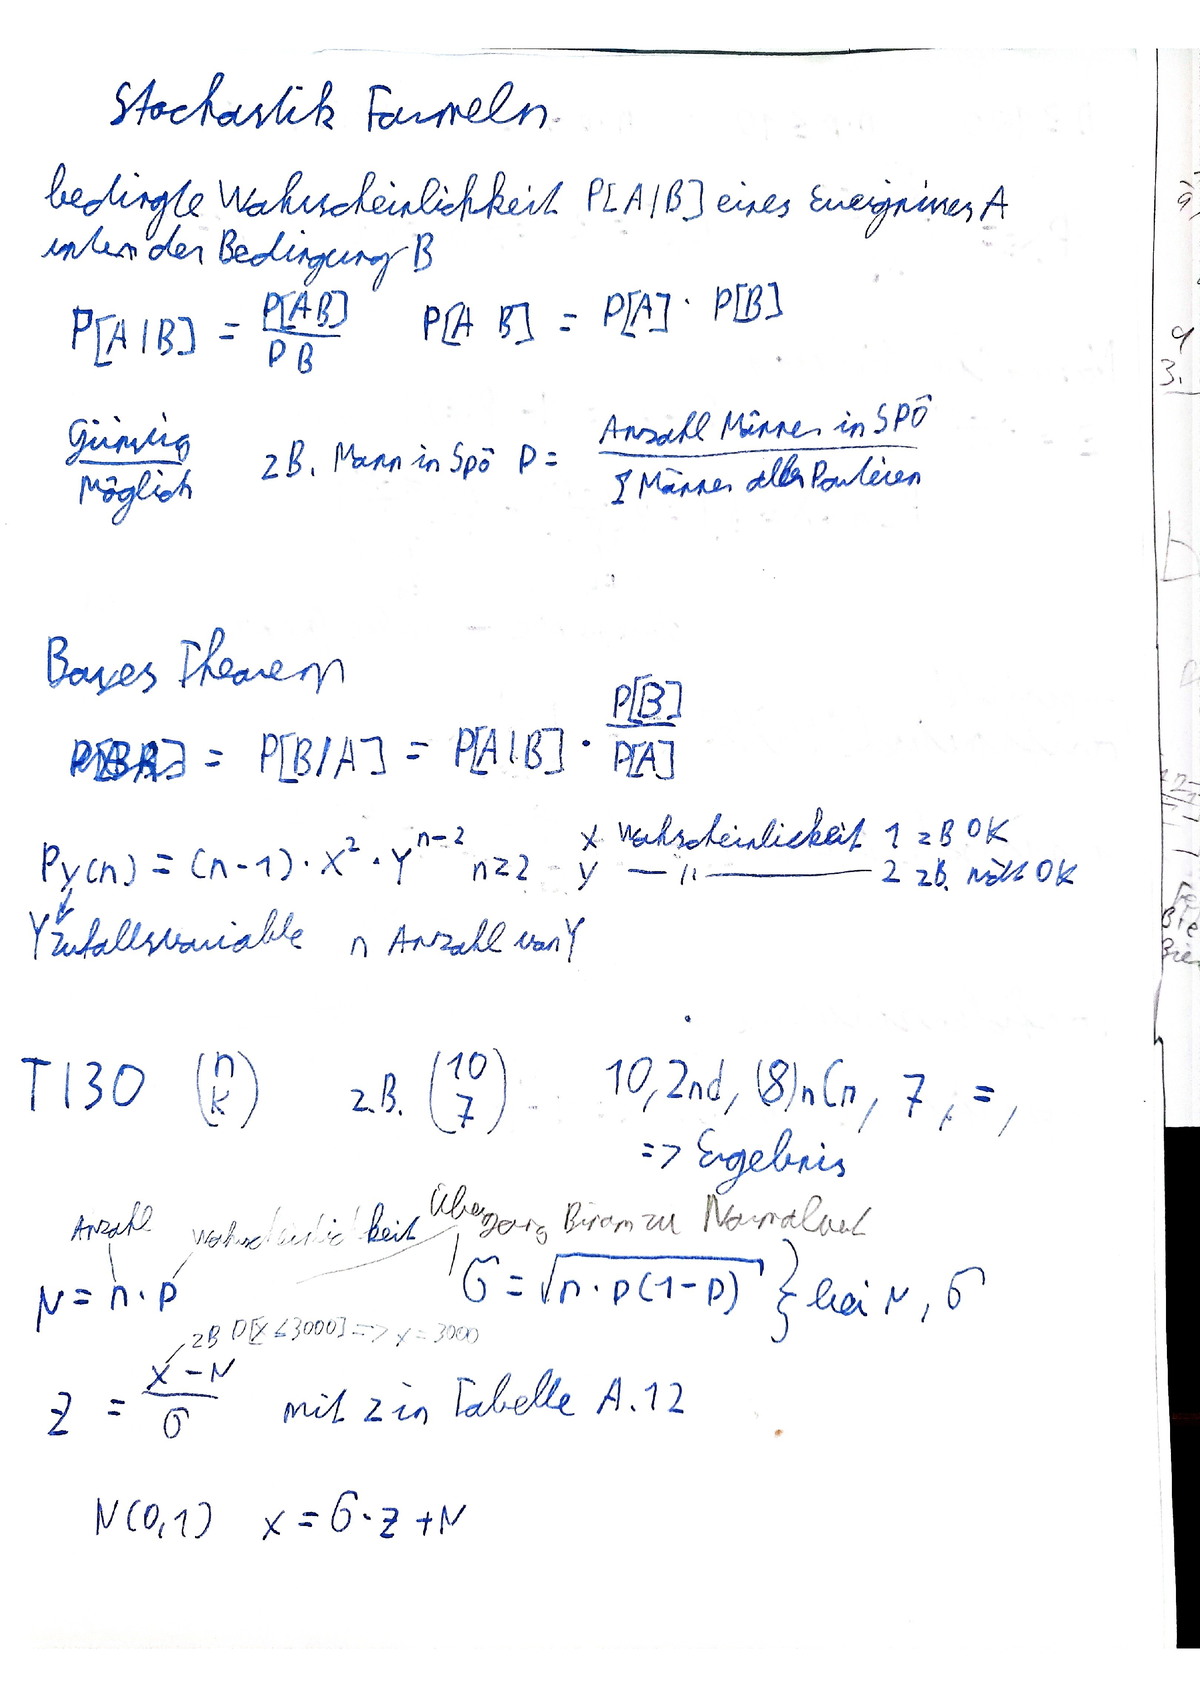 Stochastik Formeln
bedingte Wahrscheinlichkeit P[A|B] eines Ereignisses A
unter der Bedingung B
P[A|B] = P[AB] / P B    P[A B] = P[A] · P[B]
Günstig / Möglich    zB. Mann in Spö P = Anzahl Männer in SPÖ / Σ Männer aller Parteien
Bayes Theorem
= P[B/A] = P[A|B] · P[B] / P[A]
Py(n) = (n-1) · x² · y^(n-2)  n≥2  x Wahrscheinlichkeit 1 zB OK
y — " — 2 zB. nicht OK
Y Zufallsvariable  n Anzahl von Y
TI30  (n k)  z.B. (10 7)  10, 2nd, (8)nCr, 7, =,
=> Ergebnis
Anzahl  Wahrscheinlichkeit  Übergang Binom zu Normalvert
N = n · p    σ = √n · p(1-p) } bei N, σ
zB P[X ≤ 3000] => x = 3000
z = x - N / σ  mit z in Tabelle A.12
N(0,1)  x = σ · z + N